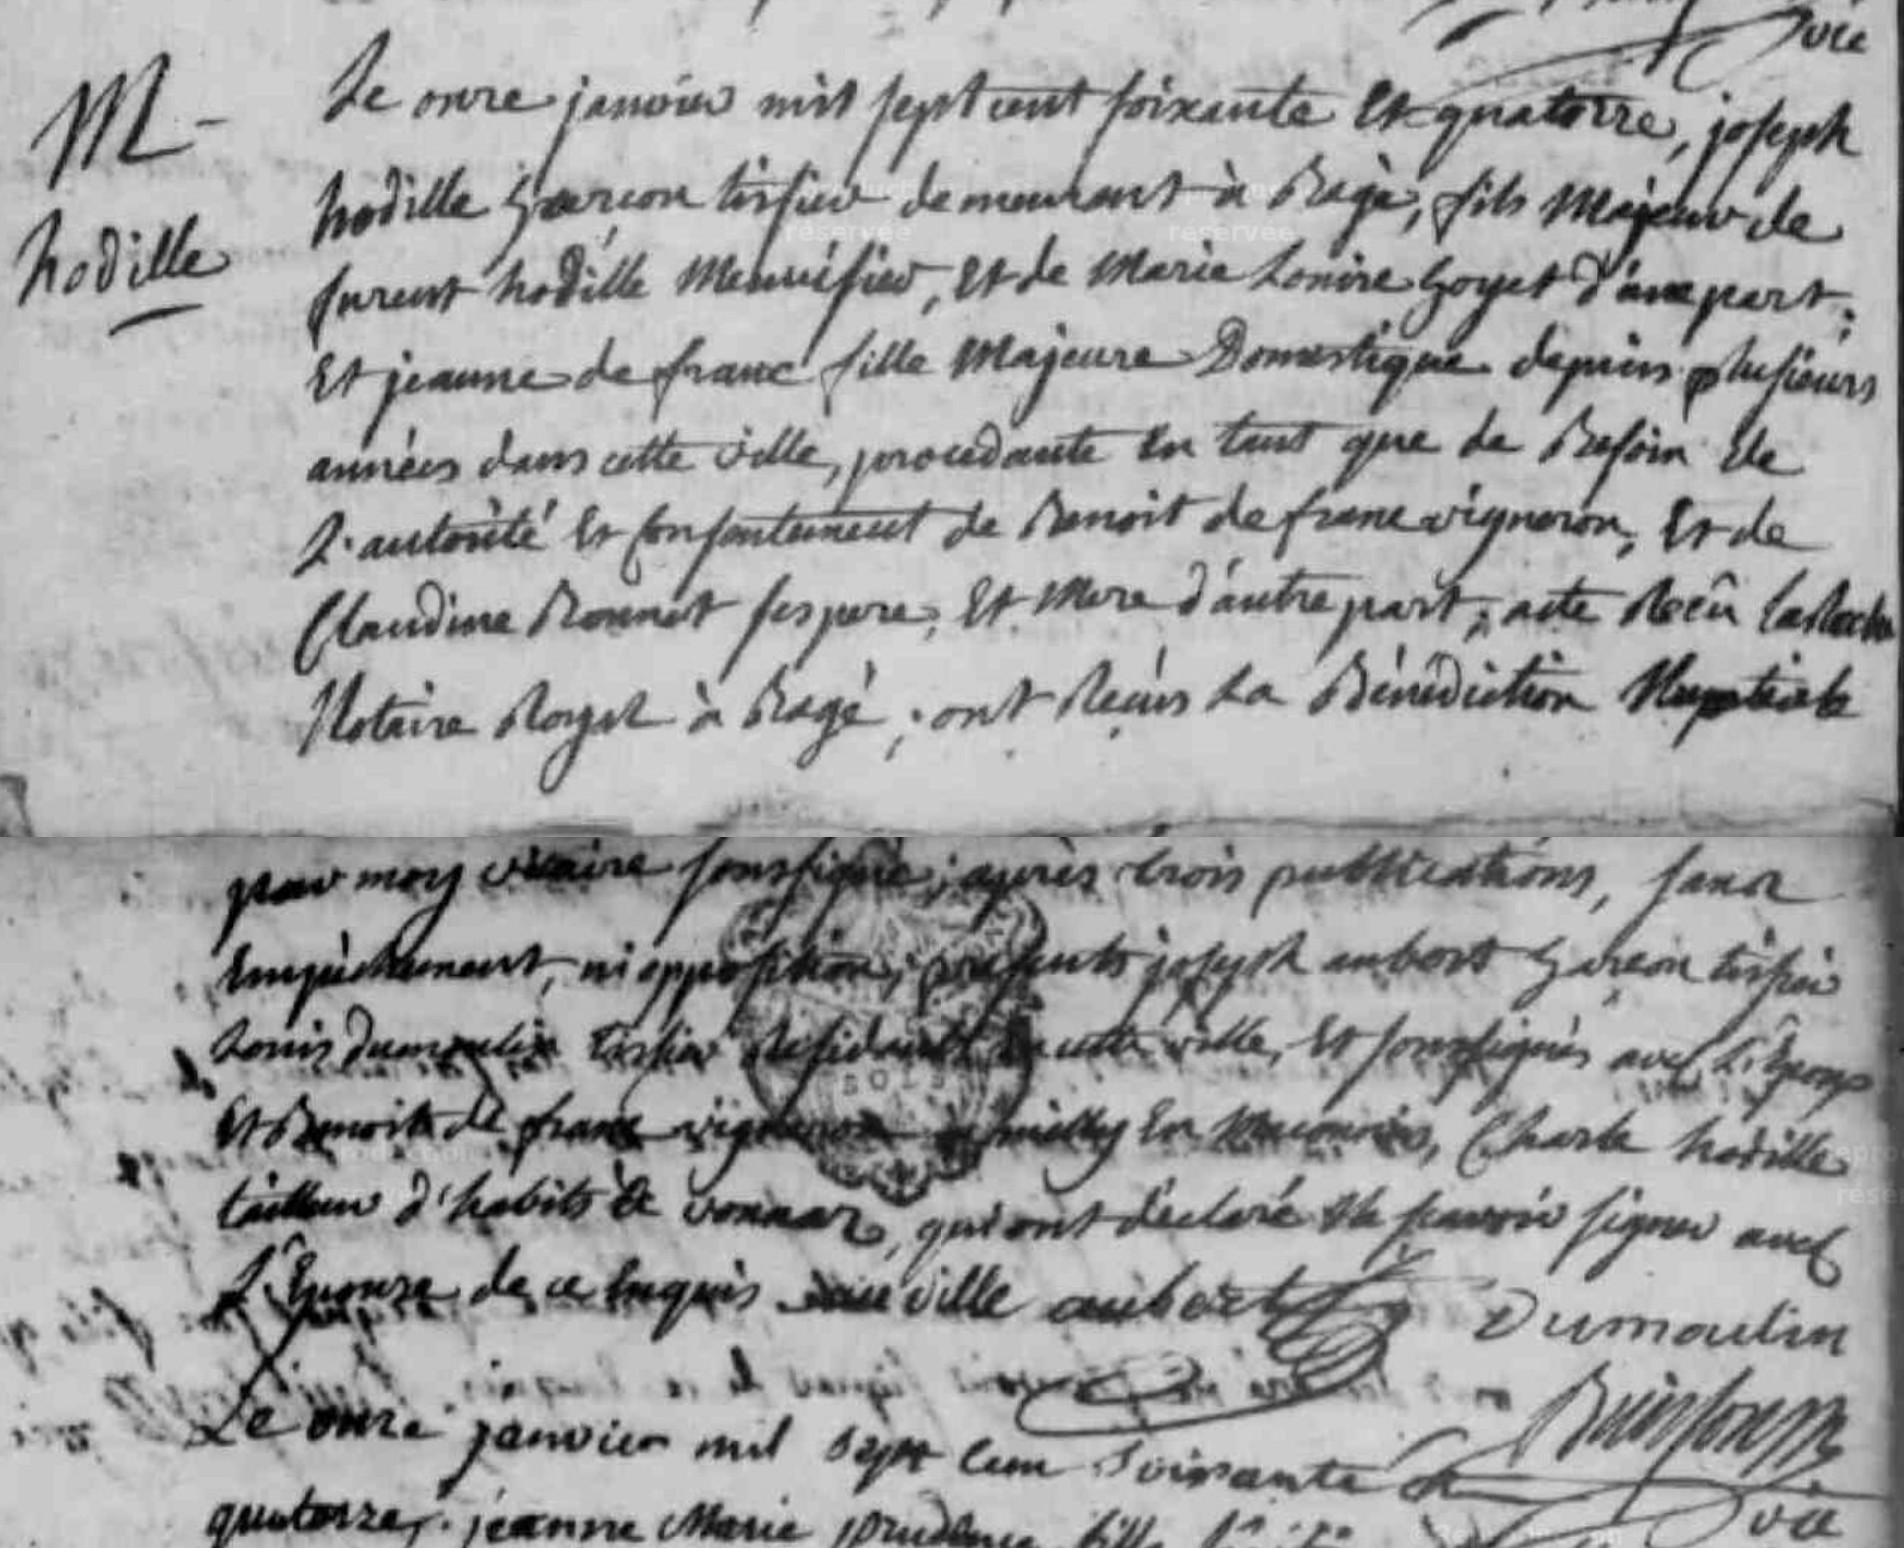 vic
M
hodille
Le onze janvier mil sept cent soixante Et quatorze, joseph
hodille Garcon tissier demeurant à Bagé, fils Majeur de
furent hodille Menuisier, Et de Marie Louise Goyet d'une part;
Et jeanne de franc fille Majeure Domestique depuis plusieurs
années dans cette ville, procedante En tant que de Besoin De
L'autorité Et Consentement de Benoit de franc vigneron, Et de
Claudine Bonnet ses pere, Et Mere d'autre part, acte Recû
Notaire Royal à Bagé, ont Reçus La Bénédiction Nuptiale
par moy vicaire soussigné, après trois publications, sans
Empêchement, ni opposition, présents joseph aubort Garcon tissier
Louis Dumoulin tissier Residants En cette ville, Et soussignés avec L'Epoux
Et Benoit de franc vigneron milly En Maconnois, Charle hodille
tailleur d'habits de vonnaz, qui ont déclaré Ne scavoir signer avec
L'Epouze de ce Enquis ville aubort Dumoulin
Buisson
vic
Le onze janvier mil sept cent soixante
quatorze, jeanne Marie prudence fille